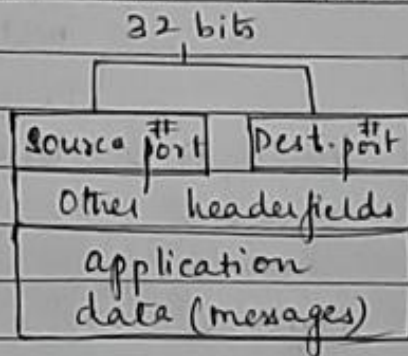 32 bits
Source port # Dest. port #
Other header fields
application
data (messages)